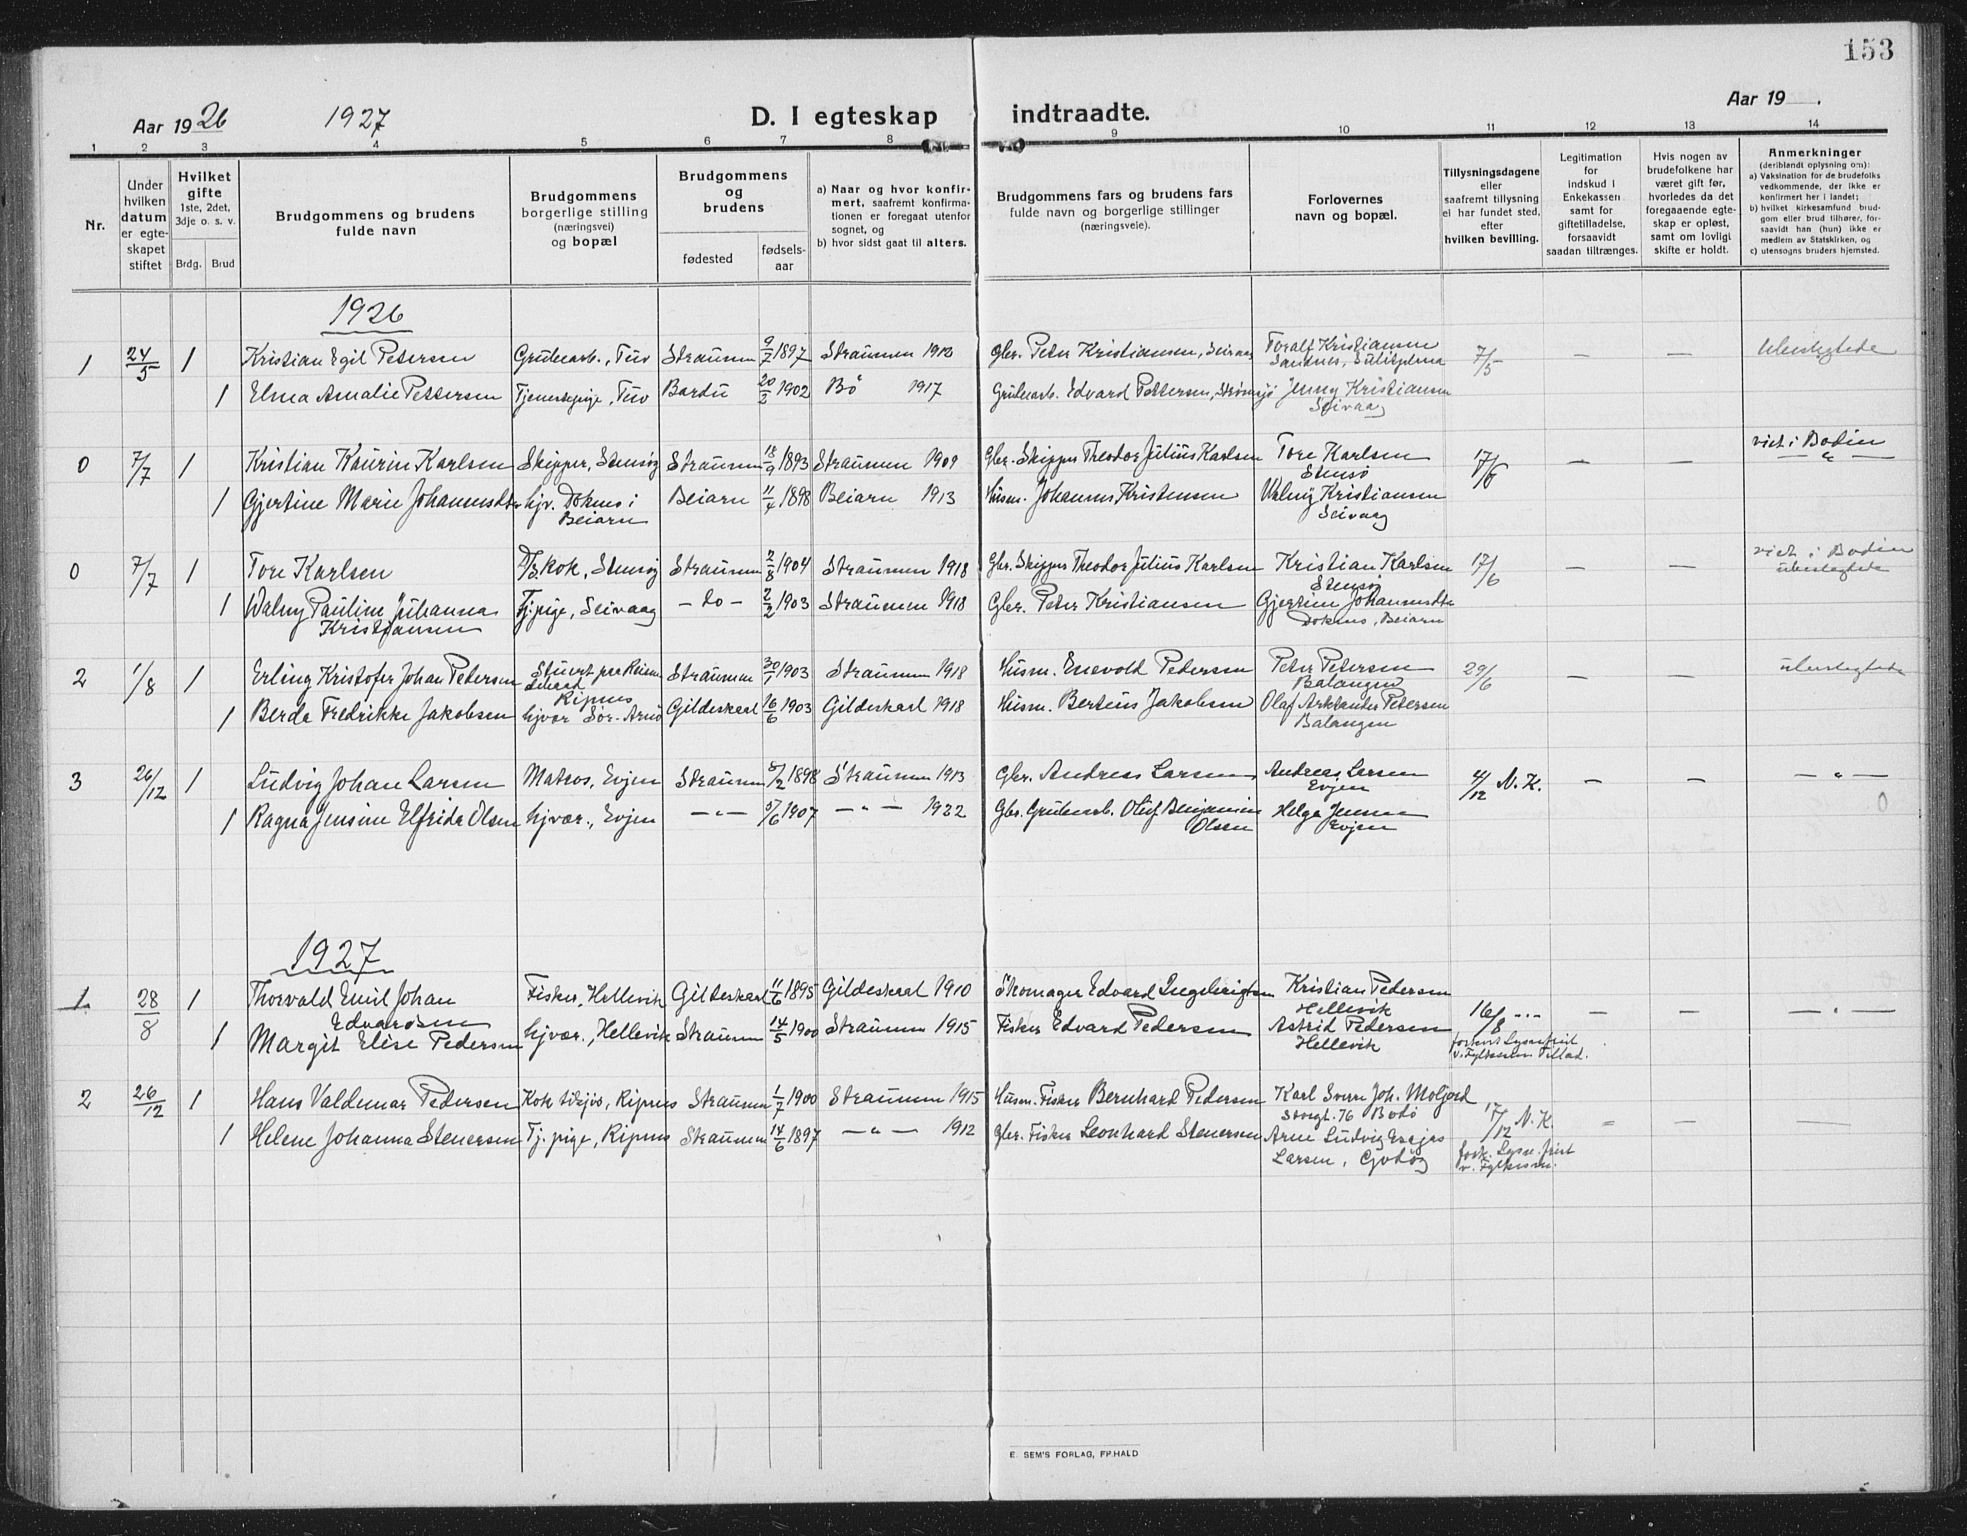 153
Aar 1926 1927 D. I egteskap indtraadte. Aar 19 .
1 2 3 4 5 6 7 8 9 10 11 12 13 14
Nr.
Under hvilken datum er egteskapet stiftet
Hvilket gifte
1ste, 2det, 3dje o. s. v.
Brdg. Brud
Brudgommens og brudens
fulde navn
Brudgommens
borgerlige stilling
(næringsvei)
og bopæl
Brudgommens
og
brudens
fødested
fødsels-
aar
a) Naar og hvor konfir-
mert, saafremt konfirma-
tionen er foregaat utenfor
sognet, og
b) hvor sidst gaat til alters.
Brudgommens fars og brudens fars
fulde navn og borgerlige stillinger
(næringsveie).
Forlovernes
navn og bopæl.
Tillysningsdagene
eller
saafremt tillysning
ei har fundet sted,
efter
hvilken bevilling.
Legitimation
for
indskud i
Enkekassen
samt for
giftetilladelse,
forsaavidt
saadan tiltrænges.
Hvis nogen av
brudefolkene har
været gift før,
hvorledes da det
foregaaende egte-
skap er opløst,
samt om lovligt
skifte er holdt.
Anmerkninger
(deriblandt oplysning om):
a) Vaksination for de brudefolks
vedkommende, der ikke er
konfirmert her i landet;
b) hvilket kirkesamfund brud-
gom eller brud tilhører, for-
saavidt han (hun) ikke er
medlem av Statskirken, og
c) utensogns bruders hjemsted.
1926
1 24/5 1 Kristian Egil Petersen Grubearb., Tuv Straumen 9/7 1897 Straumen 1912 Gbr. Peter Kristiansen, Seivaag Toralf Kristiansen Sandnes, Sulitjelma 7/5 — — Ubeslegtede
1 Elma Amalie Pettersen Tjenestepige, Tuv Bardu 20/2 1902 Bö 1917 Grubearb. Edvard Pettersen, Strømsjö Jenny Kristiansen Seivaag
0 7/7 1 Kristian Kaurin Karlsen Skipper, Stensø Straumen 18/9 1893 Straumen 1909 Gbr. Skipper Theodor Julius Karlsen Tore Karlsen Stensø 17/6 — — viet i Bodin — " —
1 Gjertine Marie Johannesdtr hjv. Dokmo i Beiarn Beiarn 11/4 1898 Beiarn 1913 Husm. Johannes Kristensen Walny Kristiansen Seivaag
0 7/7 1 Tore Karlsen D/S kok, Stensø Straumen 2/8 1904 Straumen 1918 Gbr. Skipper Theodor Julius Karlsen Kristian Karlsen Stensø 17/6 — — viet i Bodin ubeslegtede
1 Walny Pauline Juhanna Kristiansen Tj.pige, Seivaag — do — 2/2 1903 Straumen 1918 Gbr. Peter Kristiansen Gjertine Johannesdtr Dokmo, Beiarn
2 1/8 1 Erling Kristofer Johan Petersen Stuert paa Straumen 30/1 1903 Straumen 1918 Husm. Enevold Pedersen Peter Petersen Balangen 29/6 — — ubeslegtede
Ripnes
1 Berda Fredrikke Jakobsen hjvær Sør-Arnø Gildeskaal 16/6 1903 Gildeskaal 1918 Husm. Bertius Jakobsen Olaf Arktander Petersen Balangen
3 26/12 1 Ludvig Johan Larsen Matros, Evjen Straumen 8/2 1898 Straumen 1913 Gbr. Andreas Larsen Andreas Larsen Evjen 4/12 N. K. — — — " —
1 Ragna Jensine Elfrida Olsen hjvær., Evjen — " — 5/6 1907 — " — 1922 Gbr. Grubearb. Oluf Benjamin Olsen Helga Jensen Evjen 0
1927
1. 28/8 1 Thorvald Emil Johan Edvardsen Fisker, Hellevik Gildeskaal 11/6 1895 Gildeskaal 1910 Skomager Edvard Ingebrigtsen Kristian Pedersen Hellevik 16/8 -"- — — — " —
1 Margit Elise Pedersen hjvær., Hellevik Straumen 14/5 1900 Straumen 1915 Fisker Edvard Pedersen Astrid Pedersen Hellevik forkort Lysn.frist v. Fylkesmn Tillad.
2 26/12 1 Hans Valdemar Pedersen Kok tilsjøs, Ripnes Straumen 1/7 1900 Straumen 1915 Husm. Fisker Bernhard Pedersen Karl Sverre Joh. Moljord Storgt. 76 Bodø 17/12 N. K. — — —
1 Helene Johanna Stenersen Tj. pige, Ripnes Straumen 14/6 1897 — " — 1912 Gbr. Fisker Leonhard Stenersen Arne Ludvig Esajas Larsen, Godøy fork. Lysn. frist v. Fylkesm.
E. SEM'S FORLAG, FR.HALD